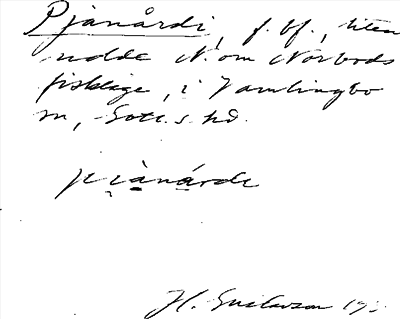 Pjänårdi, f. bf., liten
udde N. om Norbods
fiskläge, i Vamlingbo
sn, Gotl. s. hd.
pjànárdi
H. Gustavson